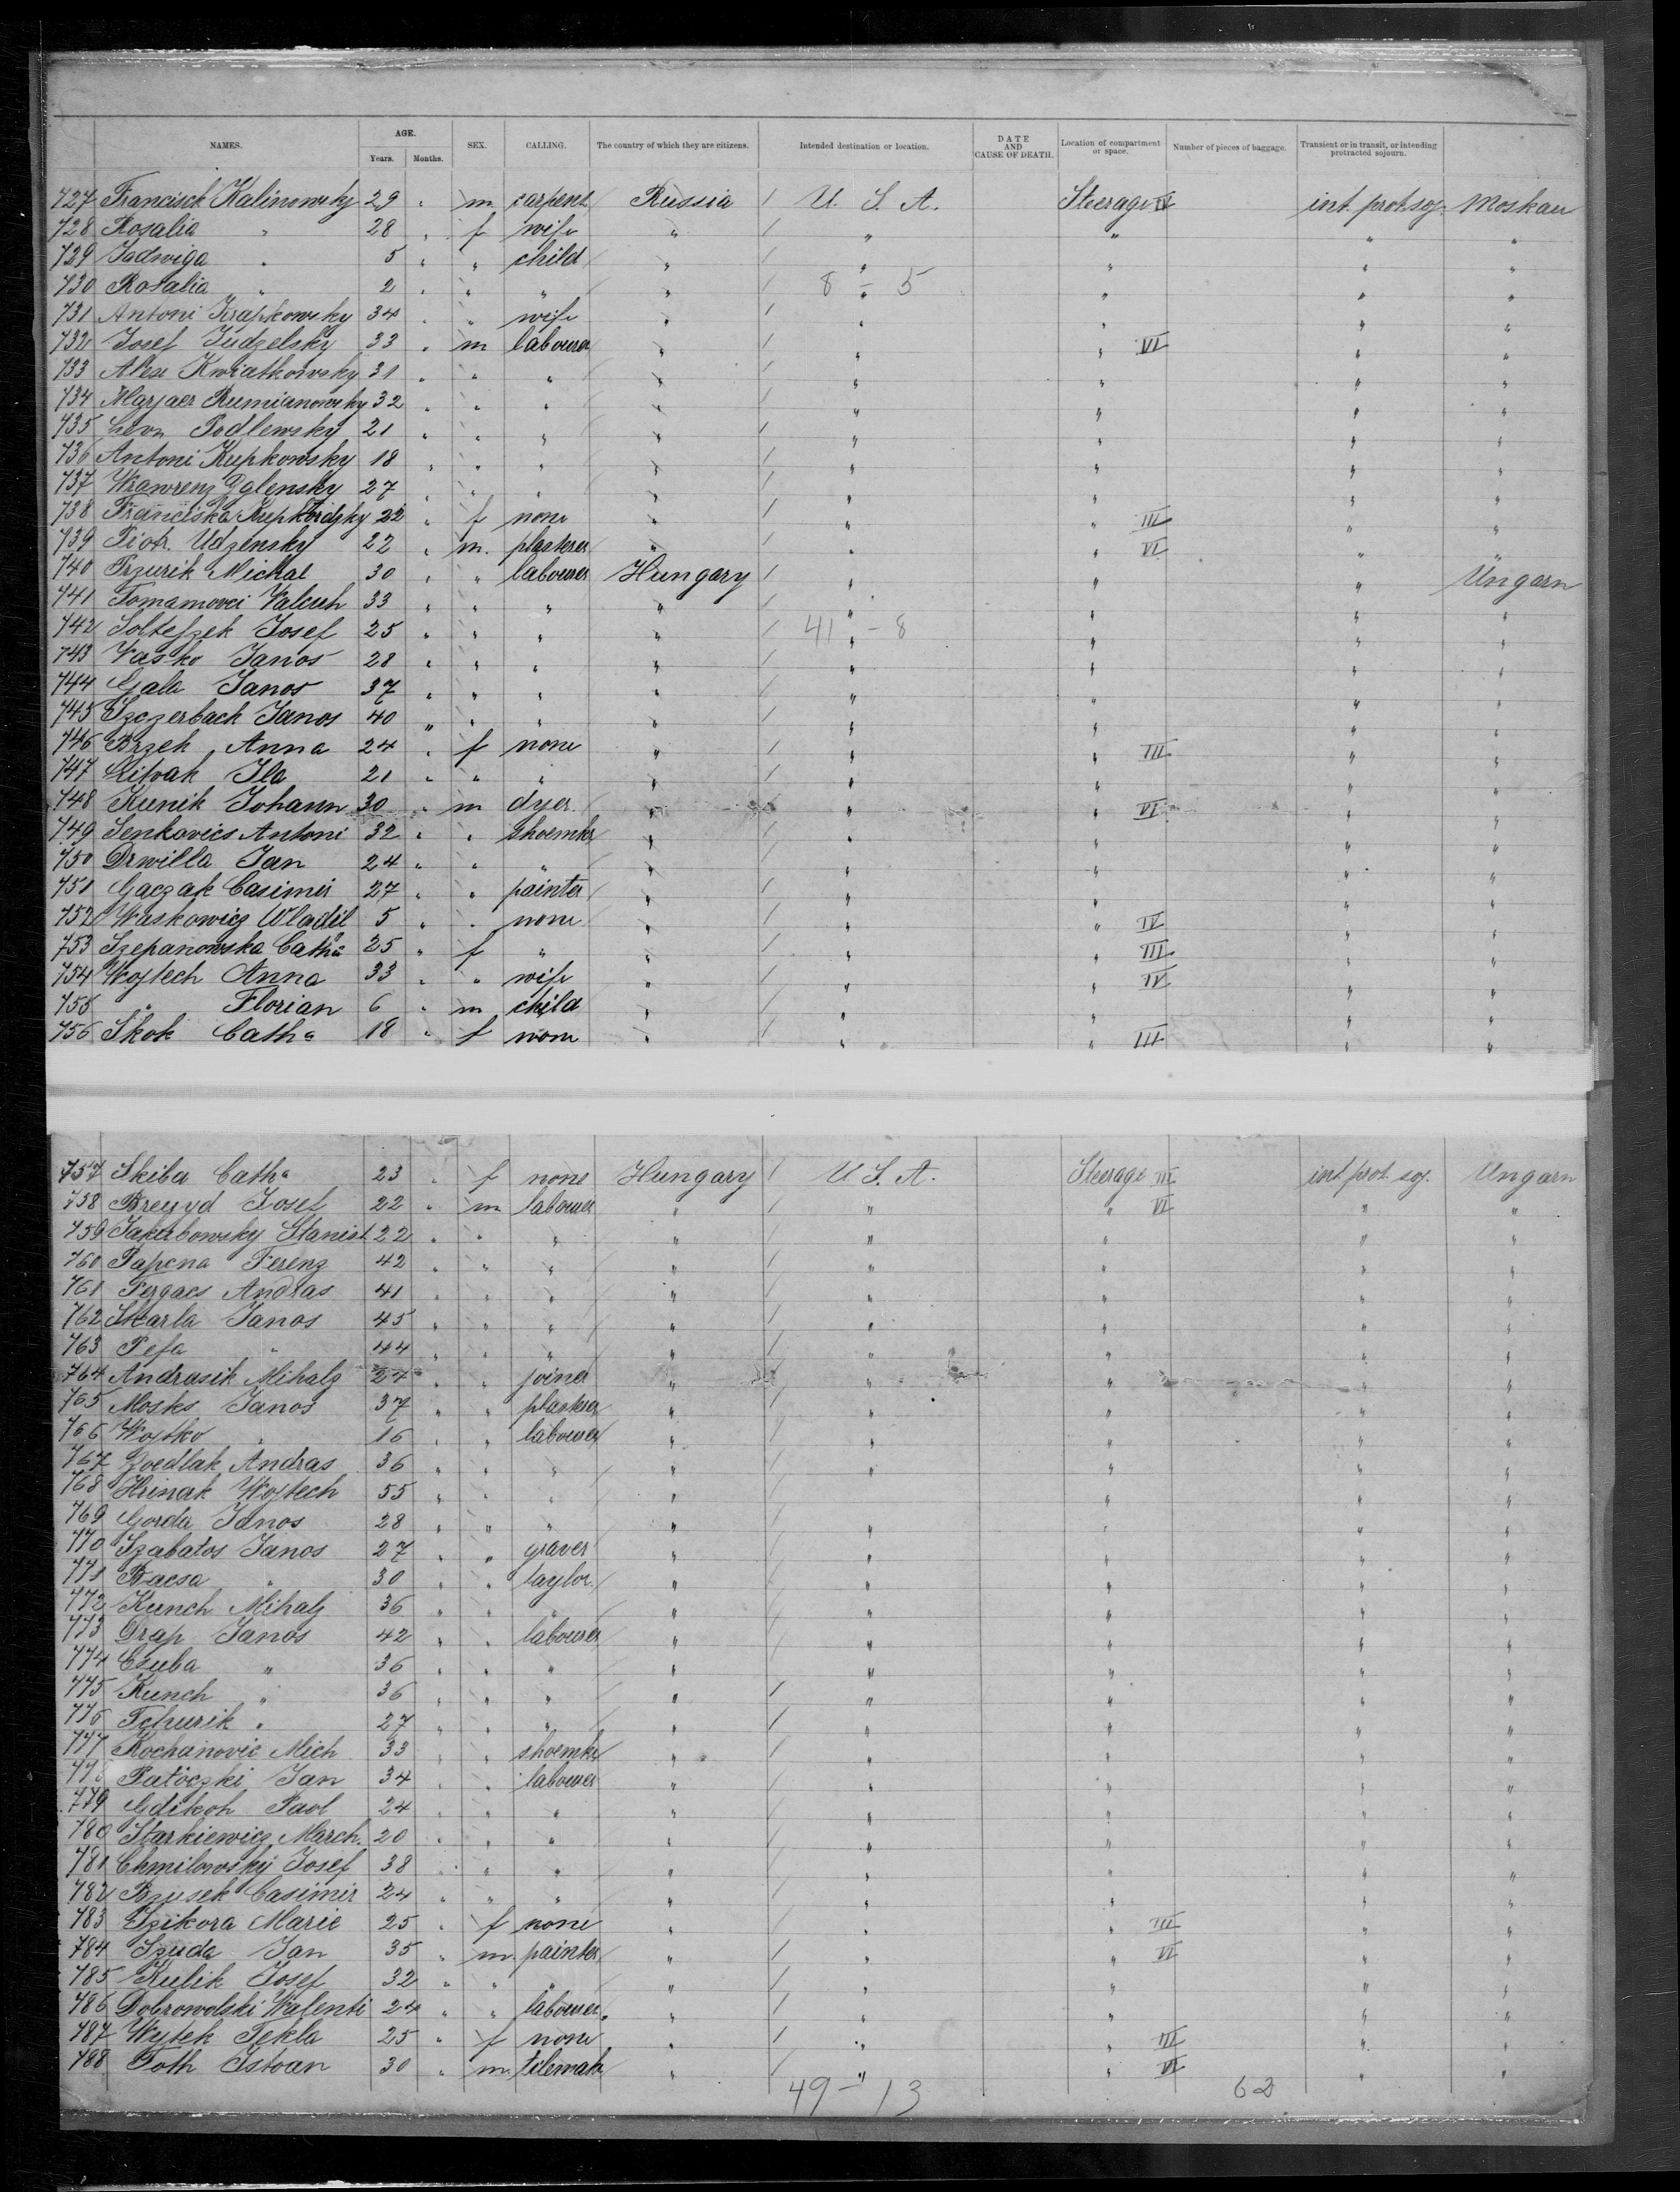 NAMES. AGE. Years. Months. SEX. CALLING. The country of which they are citizens. Intended destination or location. DATE AND CAUSE OF DEATH. Location of compartment or space. Number of pieces of baggage. Transient or in transit, or intending protracted sojourn.
727 Francisck Kalinowsky 29 " m carpent Russia / U. S. A. Steerage IV int. prot. soj. Moskau
728 Rosalia " 28 " f wife " / " " " "
729 Jadwiga " 5 " " child " / " " " "
730 Rosalia " 2 " " " " / 8 - 5 " " "
731 Antoni Krapkowsky 34 " " wife " / " " " "
732 Josef Judzelsky 33 " m labourer " / " " VI " "
733 Alex Kwiatkowsky 31 " " " " / " " " "
734 Marjaer Rumianowsky 32 " " " " / " " " "
735 Leon Podlewsky 21 " " " " / " " " "
736 Antoni Kupkowsky 18 " " " " / " " " "
737 Wawrenz 27 " " " " / " " " "
738 Franciska 22 " f none " / " " III " "
739 Piotr. Udzensky 22 " m. plasterer " / " " VI " "
740 Przurik Michal 30 " " labourer Hungary / " " " Ungarn
741 Tomamovci Valcuh 33 " " " " / " " " "
742 Soltefzek Josef 25 " " " " / 41 - 8 " " "
743 Vasko Janos 28 " " " " / " " " "
744 Gala Janos 37 " " " " / " " " "
745 Szczerbach Janos 40 " " " " / " " " "
746 Brzek Anna 24 " f none " / " " III " "
747 Litvak Ila 21 " " " " / " " " "
748 Kunik Johann 30 " m dyer " / " " VI " "
749 Senkovics Antoni 32 " " shoemkr " / " " " "
750 Drwilla Jan 24 " " " " / " " " "
751 Gaczak Casimir 27 " " painter " / " " " "
752 Waskowicz Wladil 5 " " none " / " " IV " "
753 Szepanowska Catha 25 " f " " / " " III " "
754 Wojtech Anna 33 " " wife " / " " IV " "
755 " Florian 6 " m child " / " " " "
756 Skok Catha 18 " f none " / " " III " "
757 Skiba Catha 23 " f none Hungary / U. S. A. Steerage III int. prot. soj. Ungarn
758 Josef 22 " m labourer " / " " VI " "
759 Jakubowsky Stanisl 22 " " " " / " " " "
760 Papcna Ferenz 42 " " " " / " " " "
761 Fergacs Andras 41 " " " " / " " " "
762 Skarla Janos 45 " " " " / " " " "
763 Pefa " 44 " " " " / " " " "
764 Andrasik Mihaly 24 " " joiner " / " " " "
765 Mosko Janos 37 " " plasterer " / " " " "
766 Wojtko " 16 " " labourer " / " " " "
767 Zvedlak Andras 36 " " " " / " " " "
768 Hrinak Wojtech 55 " " " " / " " "
769 Gorda Janos 28 " " " " / " " " "
770 Szabatos Janos 27 " " graver " / " " " "
771 Bacsa " 30 " " taylor " / " " " "
772 Kunch Mihaly 36 " " " " / " " " "
773 Drap Janos 42 " " labourer " / " " " "
774 Csuba " 36 " " " " / " " " "
775 Kunch " 36 " " " " / " " " "
776 Tchurik " 27 " " " " / " " " "
777 Kochanovic Mich 33 " " shoemkr " / " " " "
778 Patoczki Jan 34 " " labourer " / " " " "
779 Gdikoh Pavl 24 " " " " / " " " "
780 Starkiewicz March. 20 " " " " / " " " "
781 Chmilowsky Josef 38 " " " " / " " " "
782 Bzusek Casimir 24 " " " " / " " " "
783 Szikora Marie 25 " f none " / " " III " "
784 Szuda Jan 35 " m. painter " / " " VI " "
785 Kulik Josef 32 " " " " / " " " "
786 Dobrowolski Walenti 24 " " labourer " / " " " "
787 Wojtek Tekla 25 " f none " / " " III " "
788 Toth Istvan 30 " m. tilemak " / " " VI " "
49 - 13 62